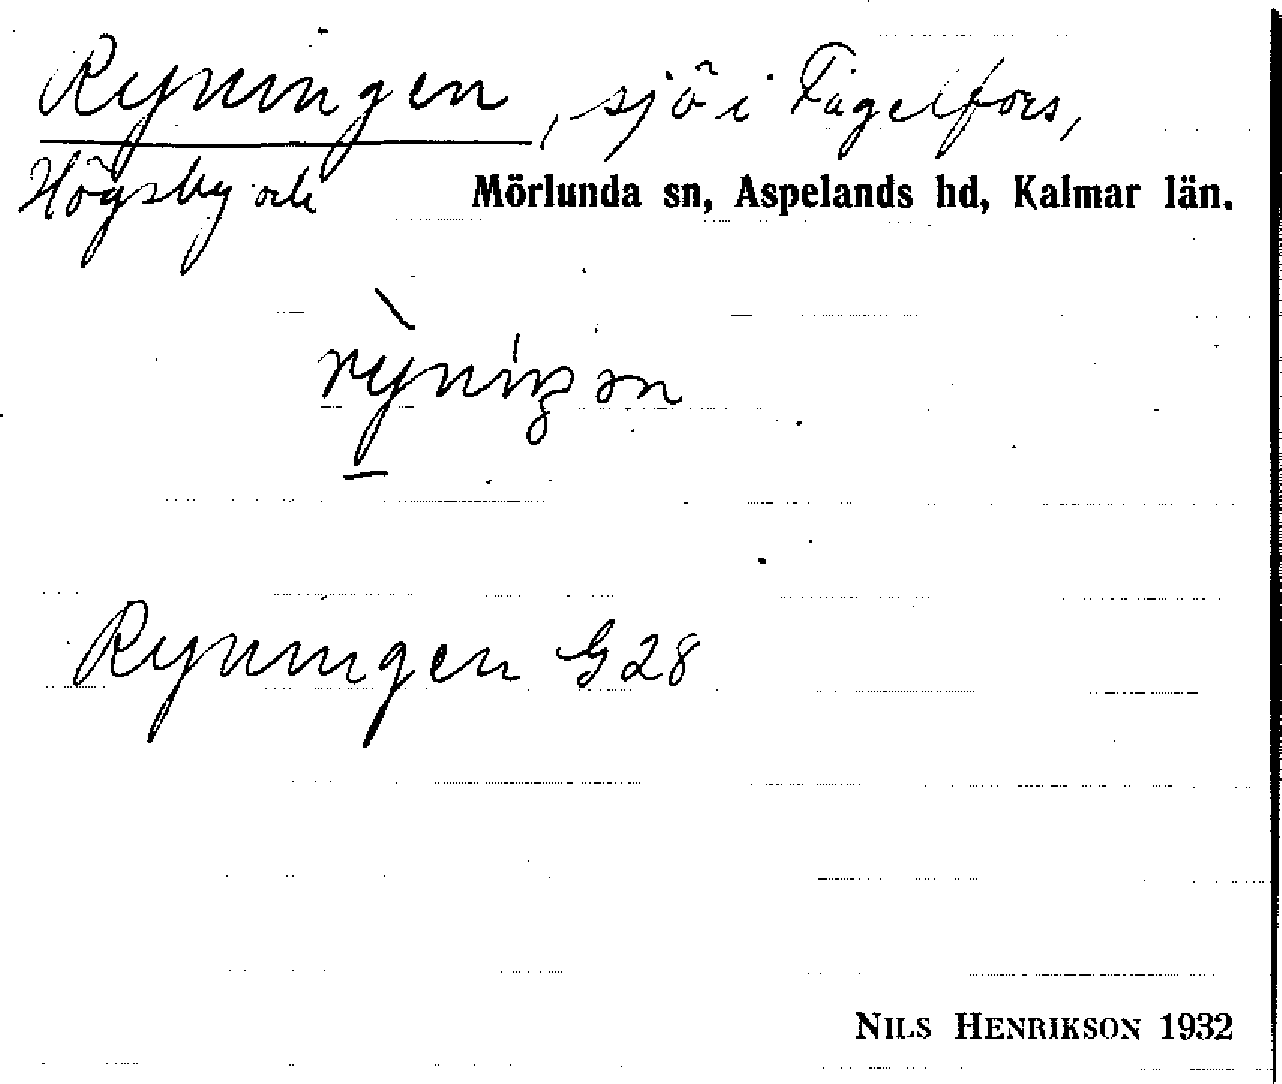 Ryningen, sjö i Fågelfors,
Högsby och Mörlunda sn, Aspelands hd, Kalmar län.
rỳniŋən
Ryningen G28
NILS HENRIKSON 1932